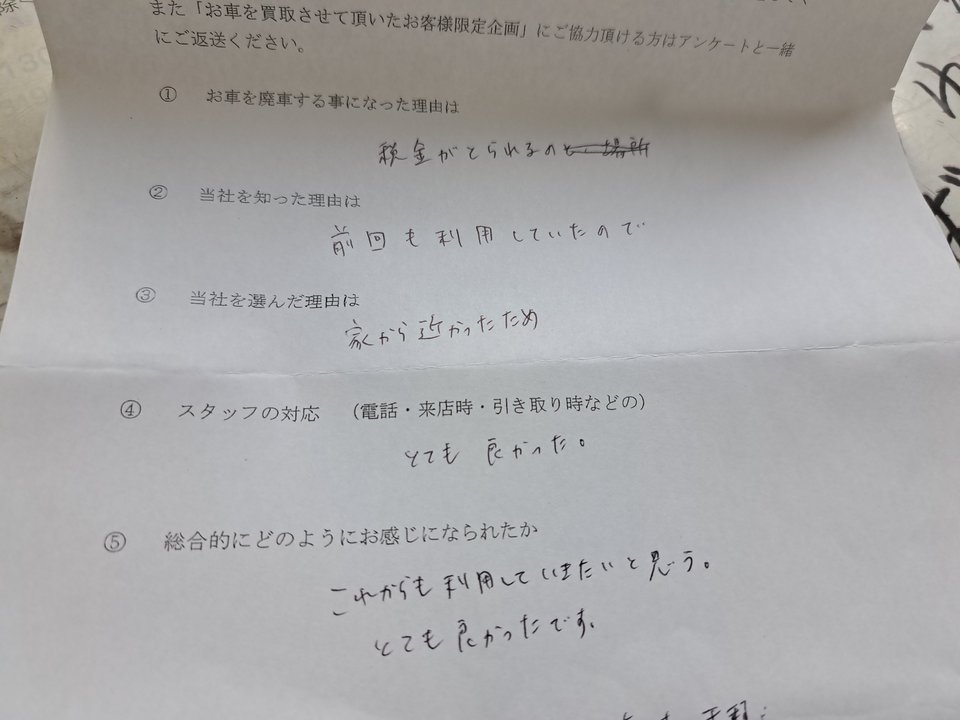 また「お車を買取させて頂いたお客様限定企画」にご協力頂ける方はアンケートと一緒
にご返送ください。
① お車を廃車する事になった理由は
税金がとられるのと、場所
② 当社を知った理由は
前回も利用していたので
③ 当社を選んだ理由は
家から近かったため
④ スタッフの対応 （電話・来店時・引き取り時などの）
とても良かった。
⑤ 総合的にどのようにお感じになられたか
これからも利用していきたいと思う。
とても良かったです。